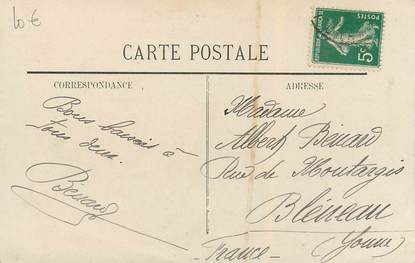 10 €
POSTES
5c
CARTE POSTALE
CORRESPONDANCE
Bons baisers à
tous deux.
Bénard
ADRESSE
Madame
Albert Bénard
Rue de Montargis
Bléneau
(Yonne)
France